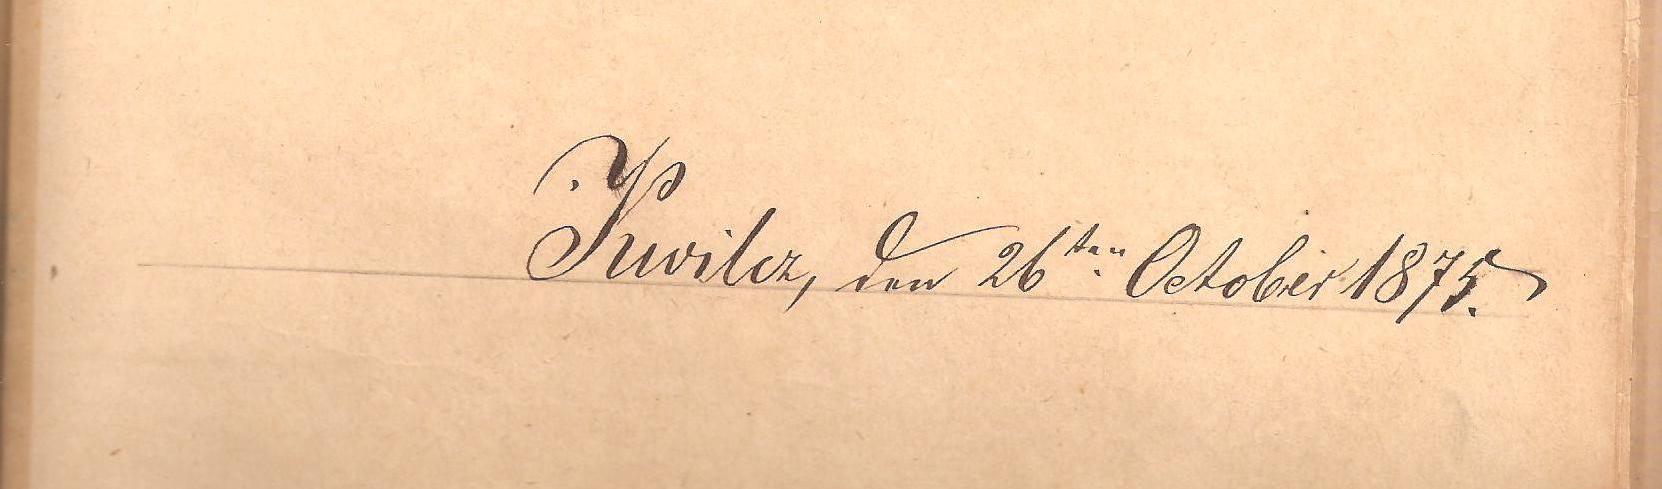 Kwilcz, den 26ten October 1875.